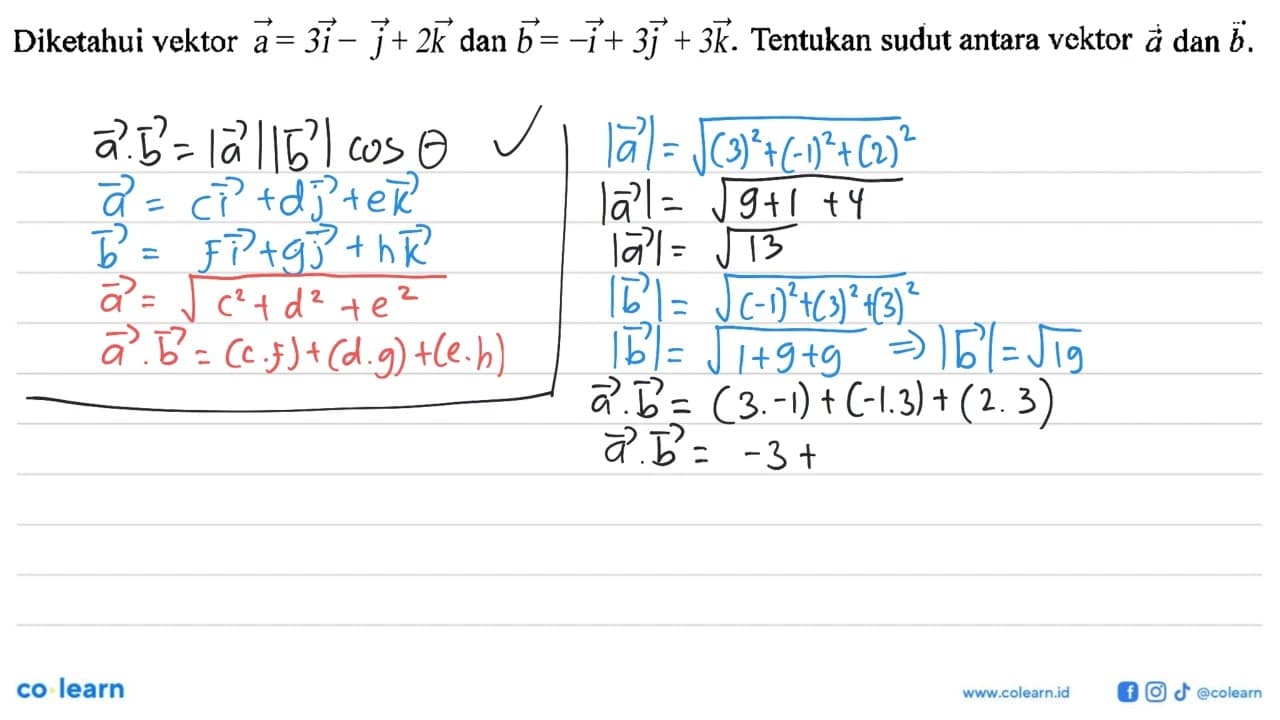 Diketahui vektor a⃗ = 3i⃗ − j⃗ + 2k⃗ dan b⃗ = −i⃗ + 3j⃗ + 3k⃗. Tentukan sudut antara vektor a⃗ dan b⃗.
a⃗.b⃗ = |a⃗||b⃗| cos θ ✓
a⃗ = ci⃗ + dj⃗ + ek⃗
b⃗ = fi⃗ + gj⃗ + hk⃗
a⃗ = √(c² + d² + e²)
a⃗.b⃗ = (c.f) + (d.g) + (e.h)
|a⃗| = √((3)² + (-1)² + (2)²)
|a⃗| = √(9+1+4)
|a⃗| = √13
|b⃗| = √((-1)² + (3)² + (3)²)
|b⃗| = √(1+9+9) ⇒ |b⃗| = √19
a⃗.b⃗ = (3.-1) + (-1.3) + (2.3)
a⃗.b⃗ = -3 +
co learn
www.colearn.id @colearn